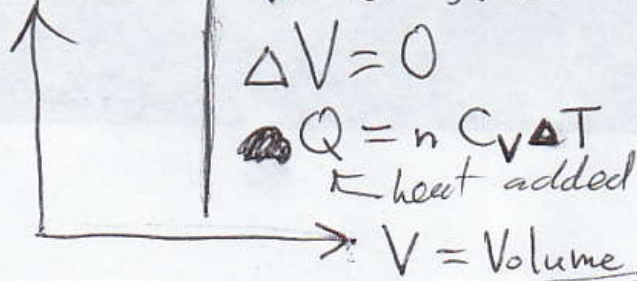 ΔV = 0
Q = n Cv ΔT
heat added
V = Volume